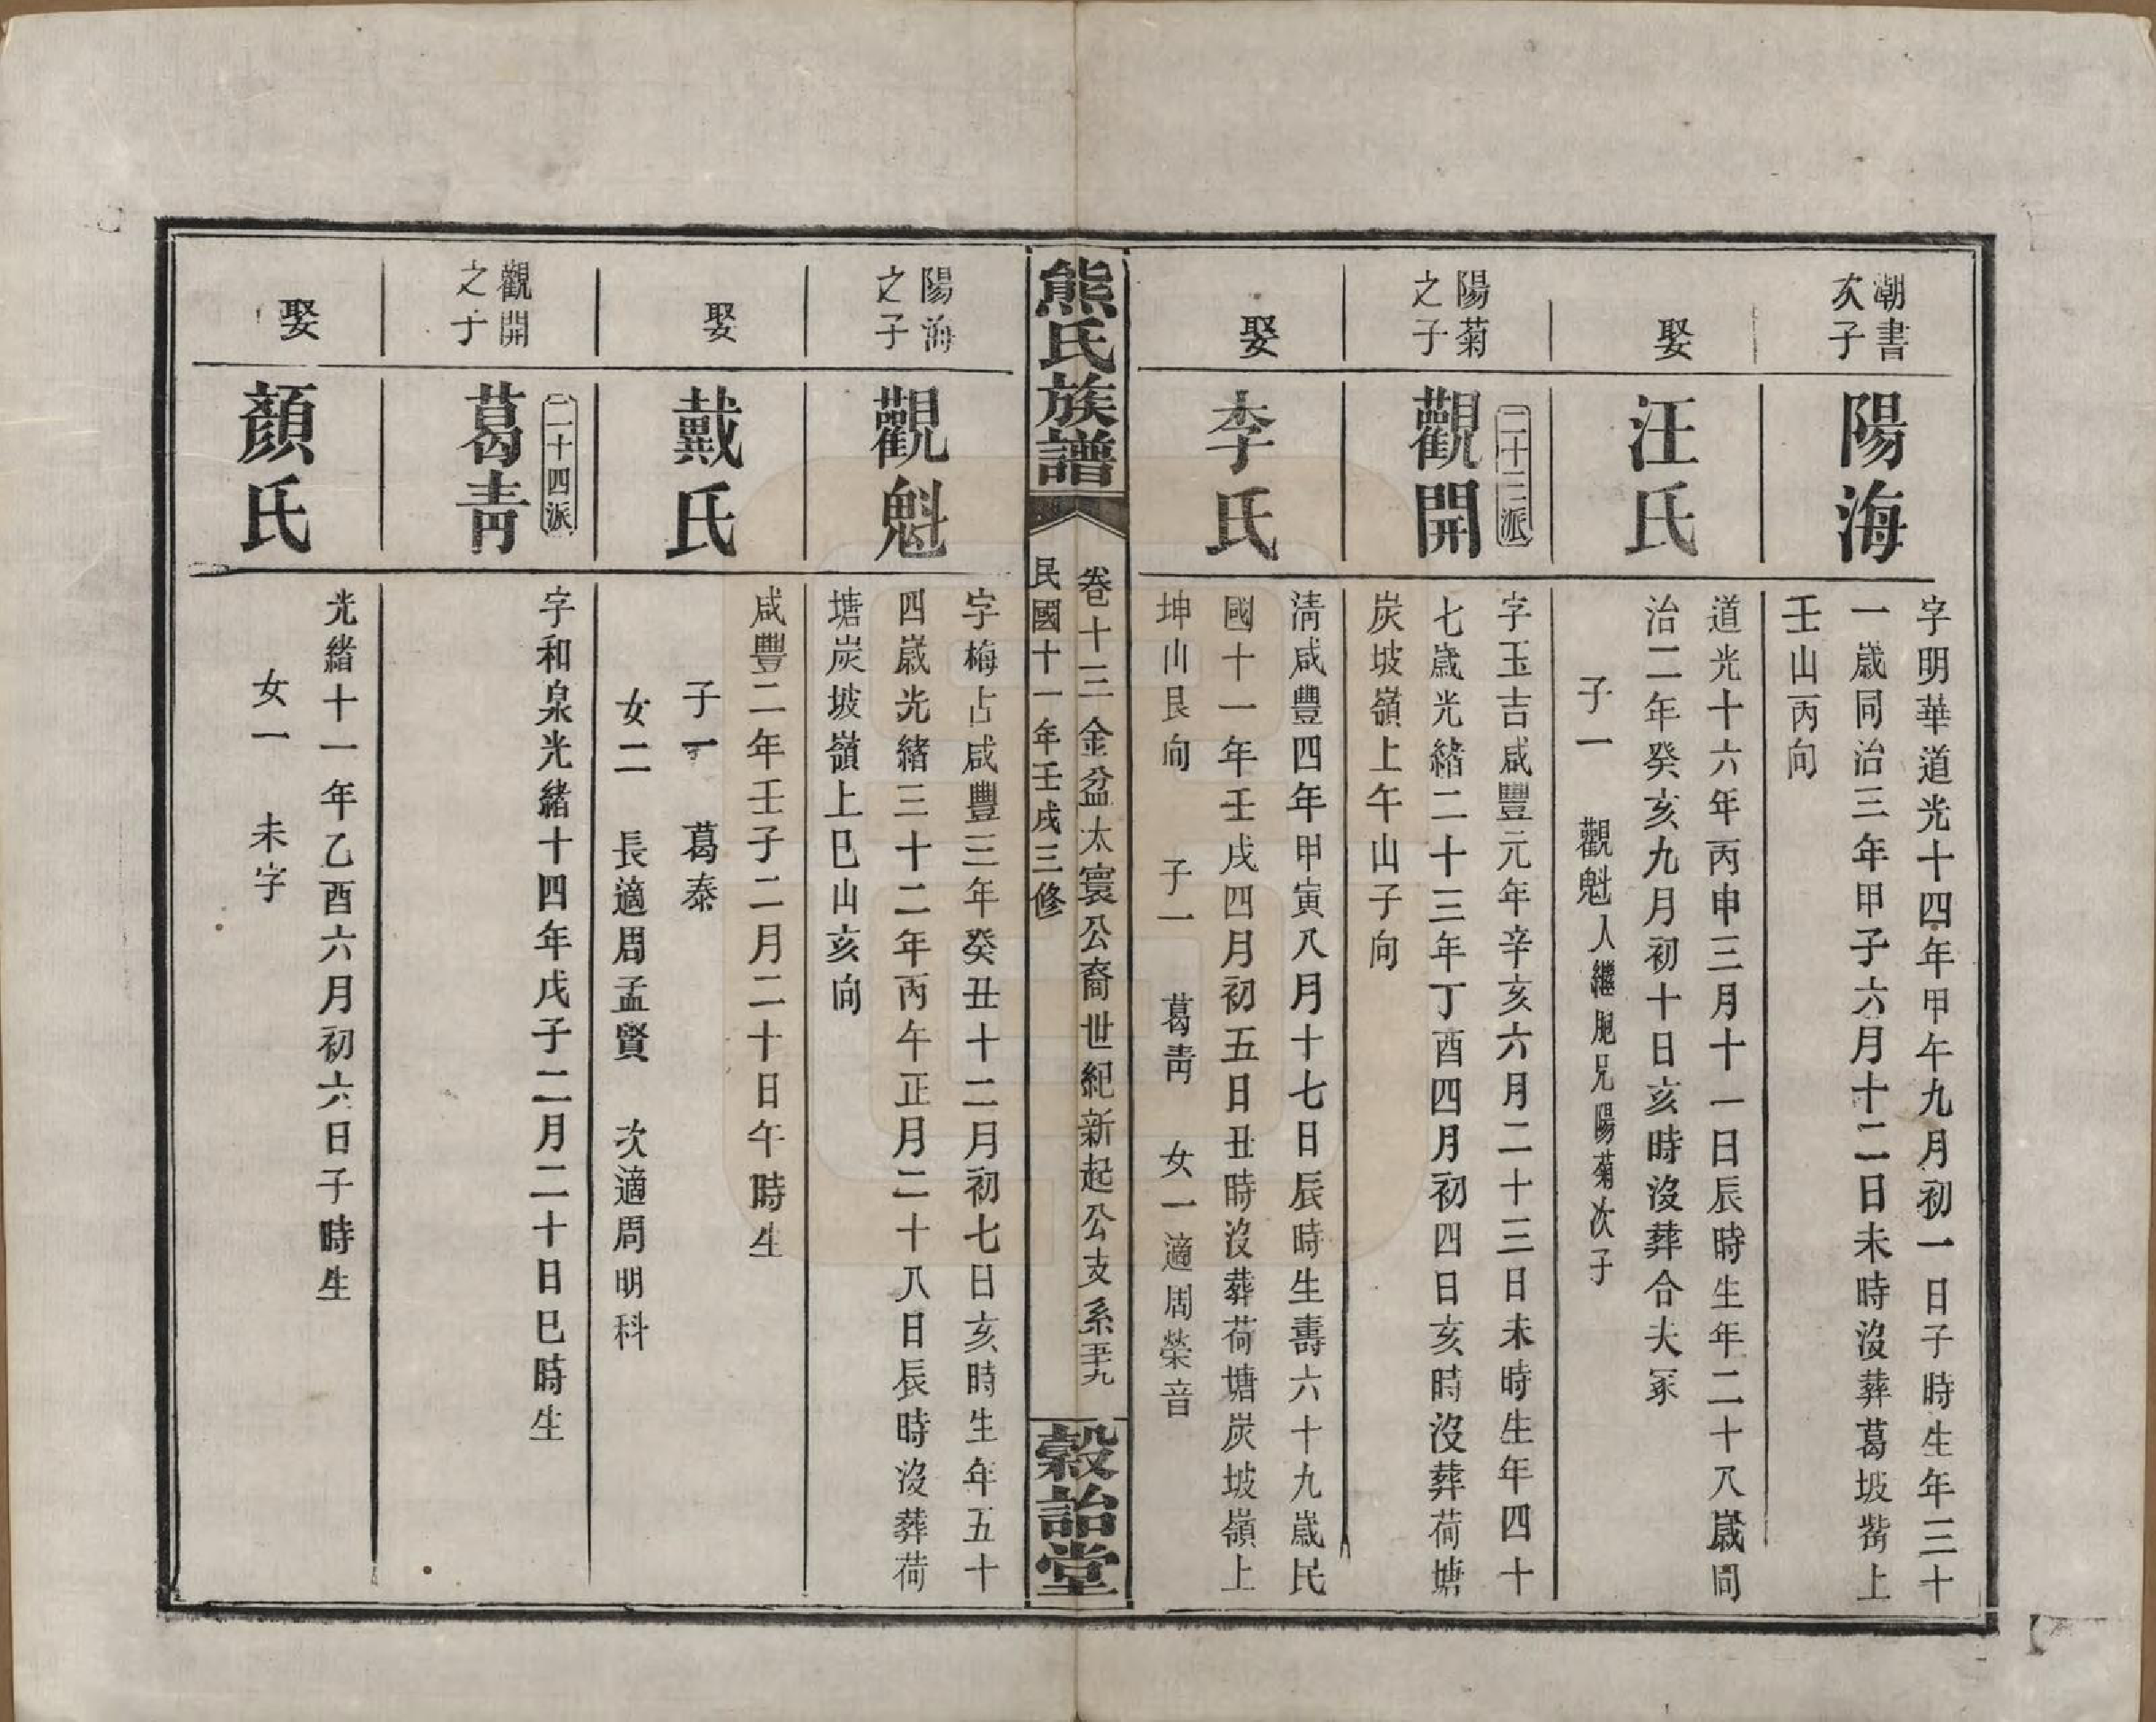 潮書
次子
陽海
字明華道光十四年甲午九月初一日子時生年三十
一歲同治三年甲子六月十二日未時沒葬葛坡嘴上
壬山丙向
娶
汪氏
道光十六年丙申三月十一日辰時生年二十八歲同
治二年癸亥九月初十日亥時沒葬合夫冢
子一 觀魁人繼胞兄陽菊次子
陽菊
之子
二十三派
觀開
字玉吉咸豐元年辛亥六月二十三日未時生年四十
七歲光緒二十三年丁酉四月初四日亥時沒葬荷塘
炭坡嶺上午山子向
娶
李氏
淸咸豐四年甲寅八月十七日辰時生壽六十九歲民
國十一年壬戌四月初五日丑時沒葬荷塘炭坡嶺上
坤山艮向 子一 葛靑 女一適周榮音
熊氏族譜
卷十三 金盆太寰公裔世紀新起公支系 五十九
民國十一年壬戌三修
穀詒堂
陽海
之子
觀魁
字梅占咸豐三年癸丑十二月初七日亥時生年五十
四歲光緒三十二年丙午正月二十八日辰時沒葬荷
塘炭坡嶺上巳山亥向
娶
戴氏
咸豐二年壬子二月二十日午時生
子一 葛泰
女二 長適周孟賢 次適周明科
觀開
之子
二十四派
葛靑
字和泉光緒十四年戊子二月二十日巳時生
娶
顏氏
光緒十一年乙酉六月初六日子時生
女一 未字